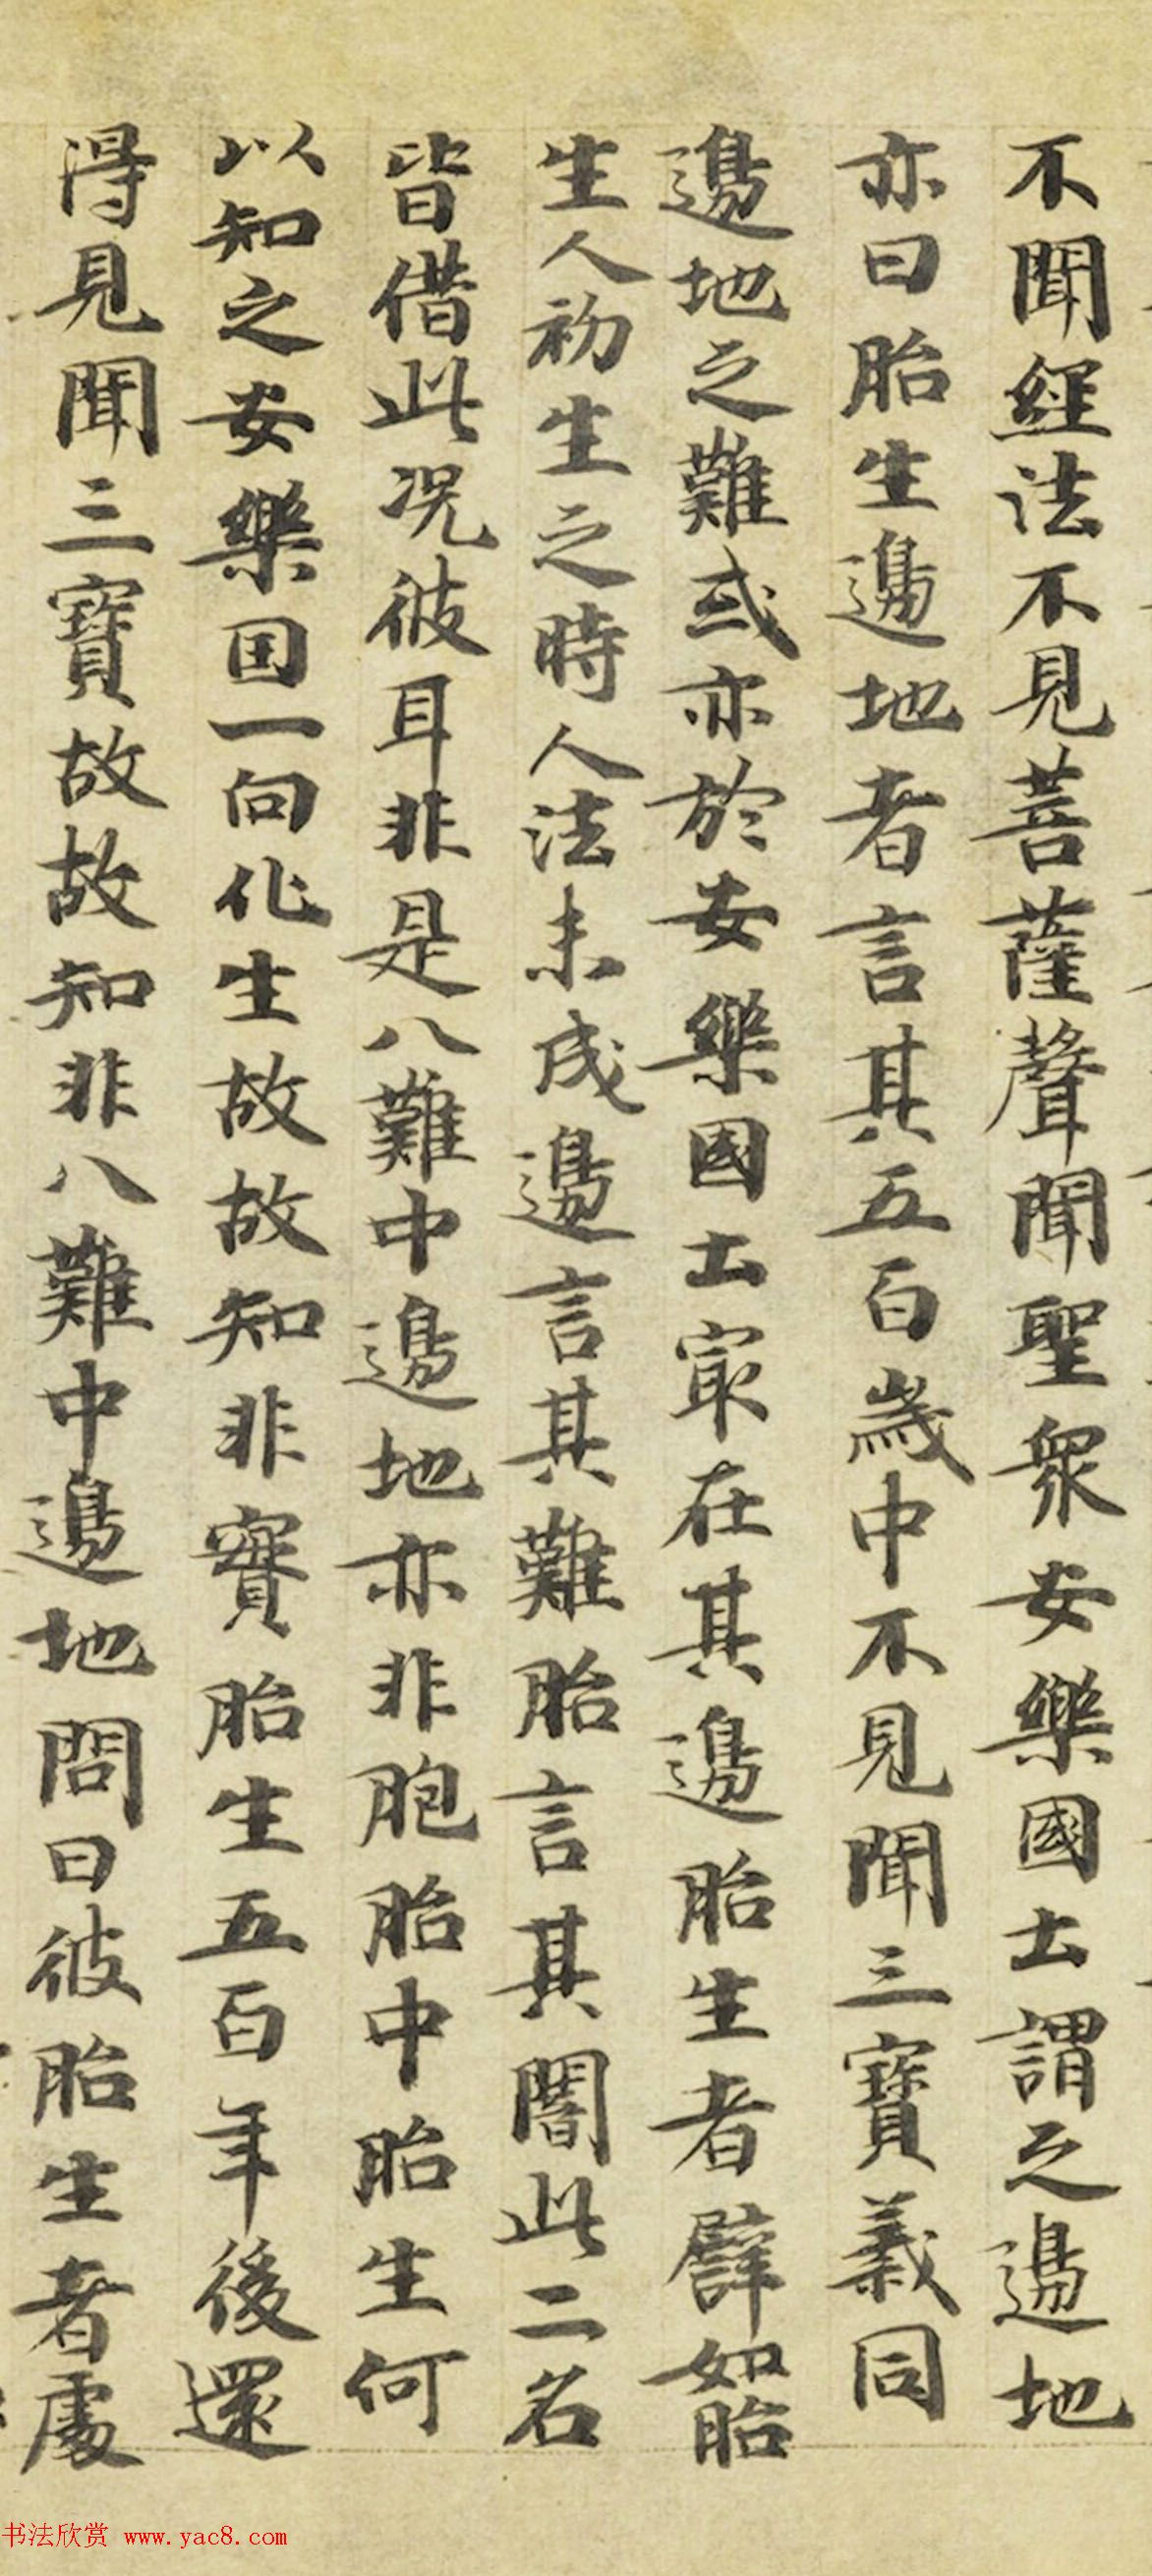 不聞經法不見菩薩聲聞聖衆安樂國土謂之邊地
亦曰胎生邊地者言其五百歲中不見聞三寶義同
邊地之難或亦於安樂國土寂在其邊胎生者譬如胎
生人初生之時人法未成邊言其難胎言其闇此二名
皆借此况彼耳非是八難中邊地亦非胞胎中胎生何
以知之安樂囯一向化生故故知非實胎生五百年後還
得見聞三寶故故知非八難中邊地問曰彼胎生者處
书法欣赏 www.yac8.com